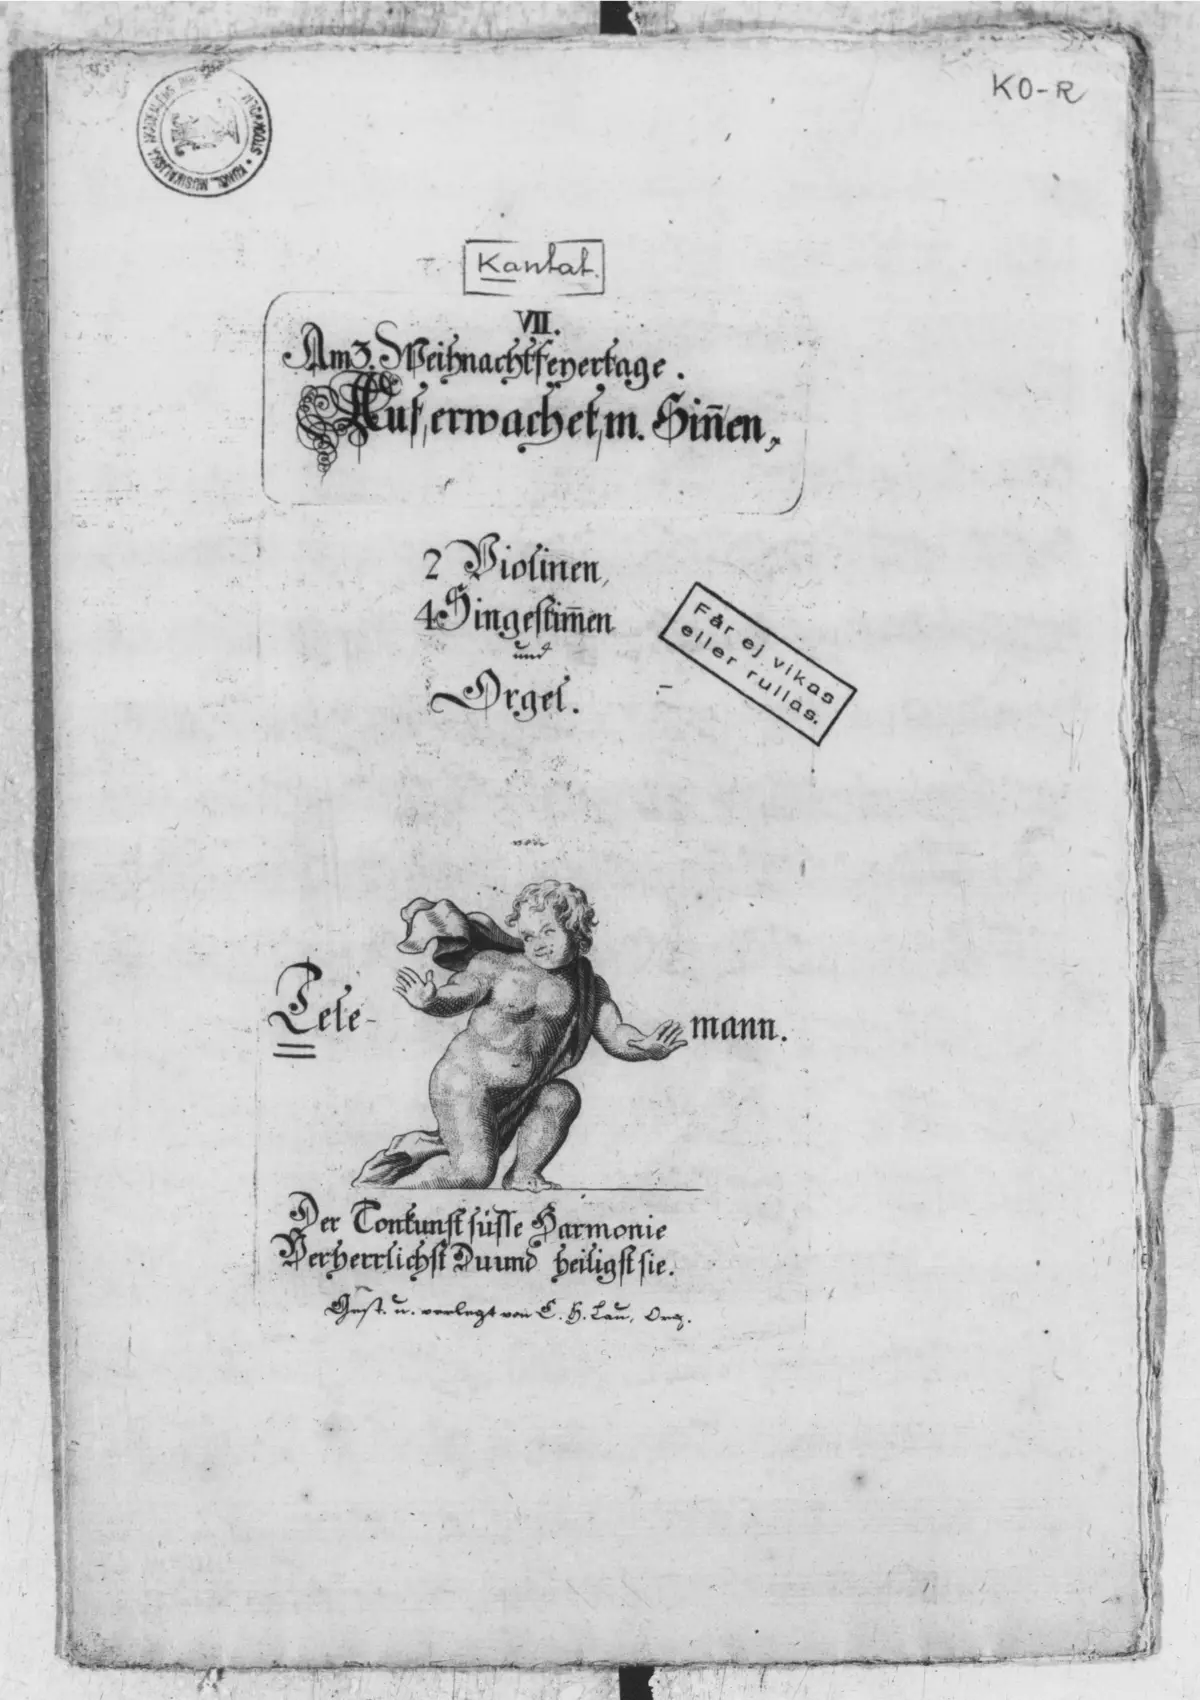 KO-R
KUNGL. MUSIKALISKA AKADEMIENS
STOCKHOLM
Kantat.
VII.
Am 3. Weihnachtsfeyertage.
Auf, erwachet, m. Siñen,
2 Violinen,
4 Singestim̅en
und
Orgel.
Får ej vikas
eller rullas.
von
Tele-
mann.
Der Tonkunst süsse Harmonie
Verherrlichst Du und heiligst sie.
Gest. u. verlegt von C. H. Lau, Org.